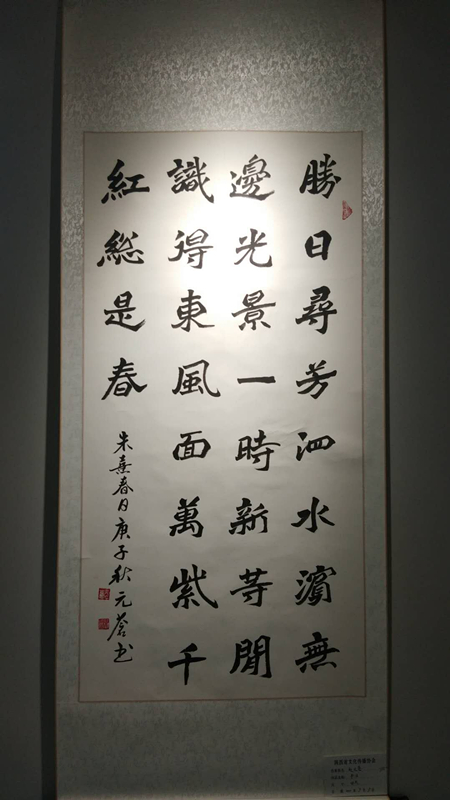 勝日尋芳泗水濱無
邊光景一時新等閒
識得東風面萬紫千
紅総是春
朱熹春日庚子秋元蒼书